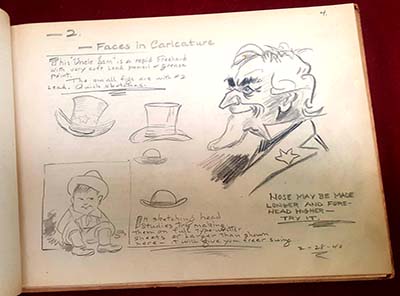 4.
— 2.
— Faces in Caricature
This "Uncle Sam" is a rapid Freehand
with very soft lead pencil or Grease
Point.
The small figs are with #2
Lead. Quick sketches.
NOSE MAY BE MADE
LONGER AND FORE-
HEAD HIGHER—
TRY IT.
In sketching head
studies try making
them on full typewriter
sheets or larger than shown
here — it will give you freer swing
2-28-40